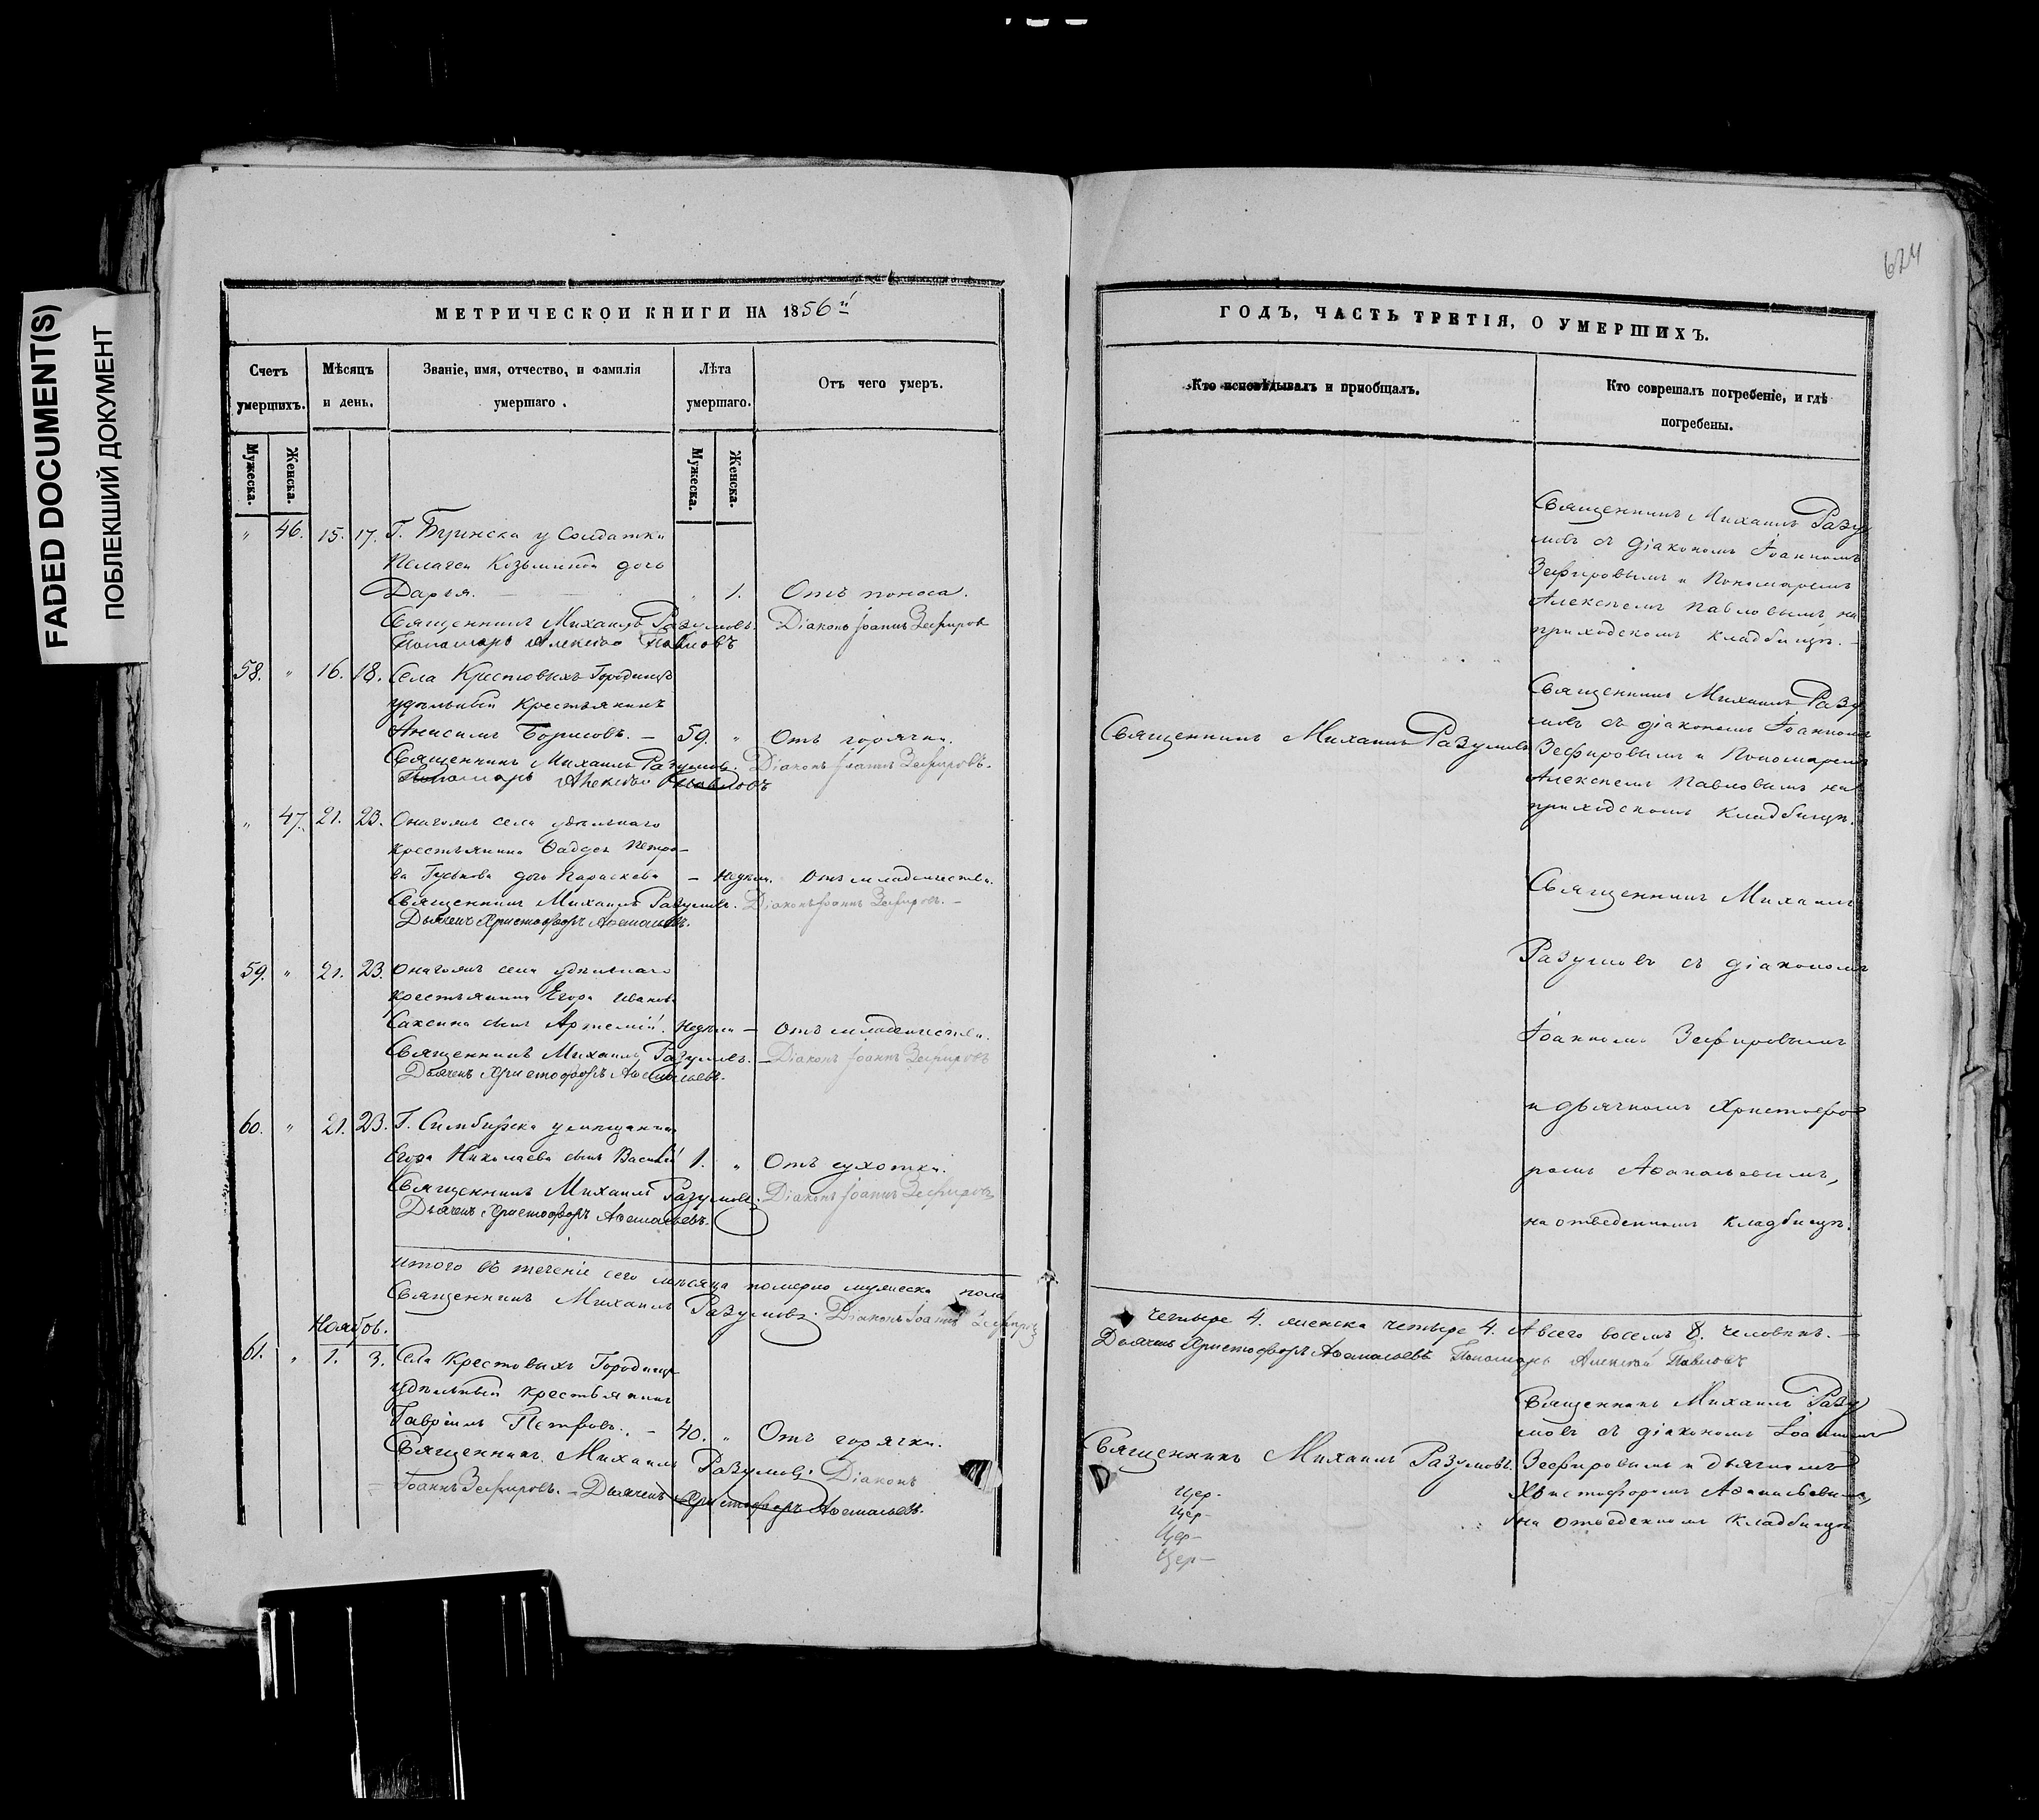 FADED DOCUMENT(S)
ПОБЛЕКШИЙ ДОКУМЕНТ
МЕТРИЧЕСКОИ КНИГИ НА 1856й
Счетъ умершихъ.
Мѣсяцъ и день.
Званіе, имя, отчество, и фамилія умершаго.
Лѣта умершаго.
Отъ чего умеръ.
Мужеска.
Женска.
Мужеска.
Женска.
„ 46. 15. 17. Г. Буинска у Солдатки
Пелагеи Козьминой дочь
Дарья. „ 1. Отъ поноса.
Священникъ Михаилъ Разумовъ. Діаконъ Іоаннъ Зефировъ
Пономарь Алексѣй Павловъ
58. „ 16. 18. Села Крестовыхъ Городищь
удѣльный крестьянинъ
Анисимъ Борисовъ. — 59. „ Отъ горячки.
Священникъ Михаилъ Разумовъ. Діаконъ Іоаннъ Зефировъ.
Пономарь Алексѣй Павловъ
„ 47. 21. 23. Онагожъ села удѣльнаго
крестьянина Ѳаддея Петро-
ва Гуськова дочь Параскева — недѣли. Отъ младенчества.
Священникъ Михаилъ Разумовъ. Діаконъ Іоаннъ Зефировъ. —
Дьячекъ Христофоръ Аѳанасьевъ.
59. „ 21. 23. Онагожъ села удѣльнаго
крестьянина Егора Иванова
сынъ Артемій. недѣли — Отъ младенчества.
Священникъ Михаилъ Разумовъ. — Діаконъ Іоаннъ Зефировъ
Дьячекъ Христофоръ Аѳанасьевъ.
60. „ 21. 23. Г. Симбирска у мещанина
Егора Николаева сынъ Василій 1. „ Отъ сухотки.
Священникъ Михаилъ Разумовъ. Діаконъ Іоаннъ Зефировъ
Дьячекъ Христофоръ Аѳанасьевъ.
Итого въ теченіе сего мѣсяца померло мужеска пола
Священникъ Михаилъ Разумовъ. Діаконъ Іоаннъ Зефировъ
Ноябрь.
61. „ 1. 3. Села Крестовыхъ Городищь
удѣльный крестьянинъ
Гавріилъ Петровъ. — 40. „ Отъ горячки.
Священникъ Михаилъ Разумовъ. Діаконъ
Іоаннъ Зефировъ. — Дьячекъ Христофоръ Аѳанасьевъ.
624
ГОДЪ, ЧАСТЬ ТРЕТІЯ, О УМЕРШИХЪ.
Кто исповѣдывалъ и пріобщалъ.
Кто соврешалъ погребеніе, и гдѣ погребены.
Священникъ Михаилъ Разу
мовъ съ діакономъ Іоанномъ
Зефировымъ и Пономаремъ
Алексѣемъ Павловымъ, на
приходскомъ кладбищѣ. —
Священникъ Михаилъ Разумовъ
Священникъ Михаилъ Разу
мовъ съ діакономъ Іоанномъ
Зефировымъ и Пономаремъ
Алексѣемъ Павловымъ на
приходскомъ кладбищѣ.
Священникъ Михаилъ
Разумовъ съ діакономъ
Іоанномъ Зефировымъ
и дьячкомъ Христофо
ромъ Аѳанасьевымъ,
на отведенномъ кладбищѣ.
четыре 4. женска четыре 4. А всего восемь 8. человѣкъ. —
Дьячекъ Христофоръ Аѳанасьевъ Пономарь Алексѣй Павловъ
Священникъ Михаилъ Разумовъ.
Священникъ Михаилъ Разу
мовъ съ діакономъ Іоанномъ
Зефировымъ и дьячкомъ
Христофоромъ Аѳанасьевымъ,
на отведенномъ кладбищѣ
Цер-
Цер-
Цер-
Цер-